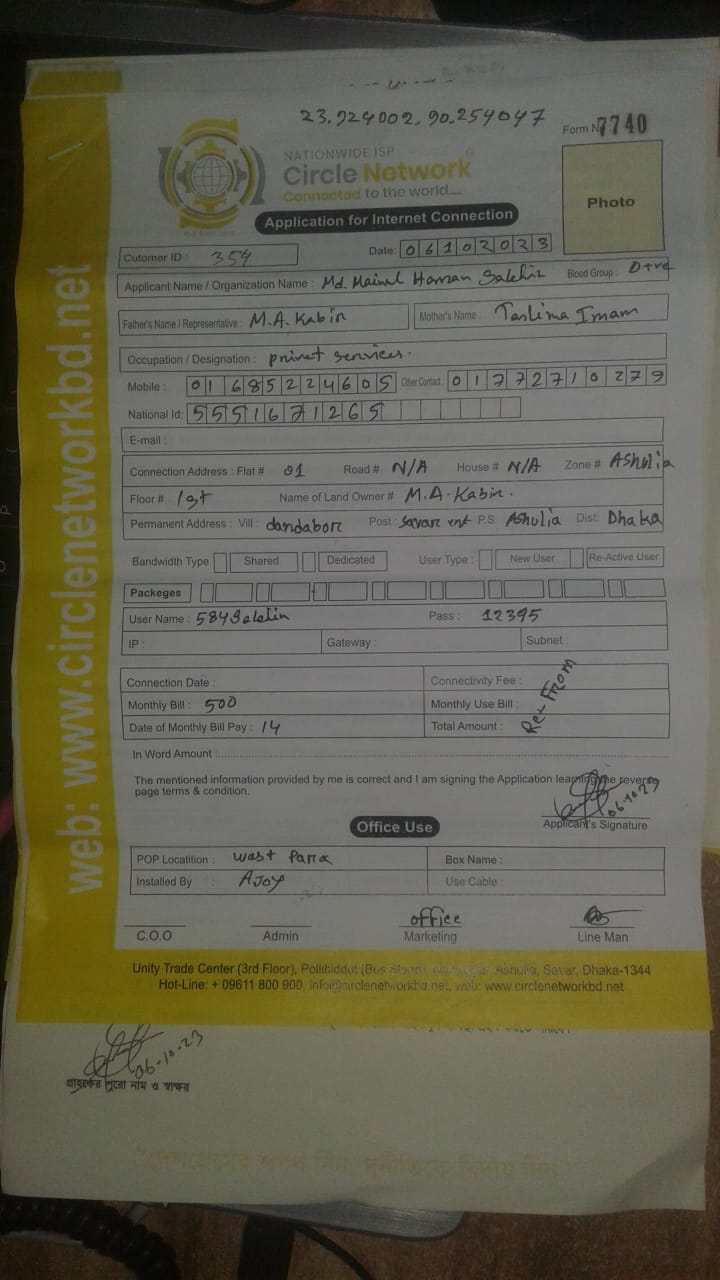 23.924002, 90.254047
Form N 7740
NATIONWIDE ISP
Circle Network
Connected to the world....
Photo
Application for Internet Connection
Cutomer ID : 354 Date: 06102023
Applicant Name / Organization Name : Md. Mainul Hassan Salehin Blood Group : O+ve
Father's Name / Representative : M.A. Kabir Mother's Name : Taslima Imam
Occupation / Designation : privet services.
Mobile : 01685224605 Other Contact : 01772710279
National Id: 5551671265
E-mail :
Connection Address : Flat # 01 Road # N/A House # N/A Zone # Ashulia
Floor # 1st Name of Land Owner # M.A-Kabir.
Permanent Address : Vill : dandabor Post : Savar P.S. Ashulia Dist: Dhaka
Bandwidth Type Shared Dedicated User Type : New User Re-Active User
Packeges
User Name : 584Salehin Pass : 12395
IP : Gateway : Subnet :
Connection Date : Connectivity Fee :
Monthly Bill : 500 Monthly Use Bill :
Date of Monthly Bill Pay : 14 Total Amount :
Re- From
In Word Amount :
The mentioned information provided by me is correct and I am signing the Application learning the reverse
page terms & condition.
06-10-23
Applicant's Signature
Office Use
POP Locatition : west Para Box Name :
Installed By : AJoy Use Cable :
office
C.O.O Admin Marketing Line Man
Unity Trade Center (3rd Floor), Pollibiddut (Bus Stand), Ashulia, Savar, Dhaka-1344
Hot-Line: + 09611 800 900, info@circlenetworkbd.net, web: www.circlenetworkbd.net
web: www.circlenetworkbd.net
06-10-23
গ্রাহকের পুরো নাম ও স্বাক্ষর
"দেশপ্রেমের শপথ নিন, দুর্নীতিকে বিদায় দিন"